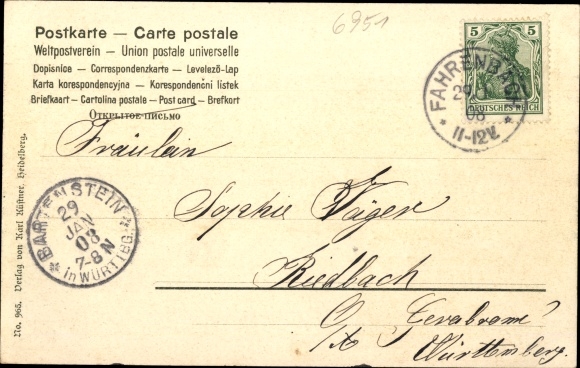 6951
Postkarte — Carte postale
Weltpostverein — Union postale universelle
Dopisnice — Correspondenzkarte — Levelező-Lap
Karta korespondencyjna — Korespondenční lístek
Briefkaart — Cartolina postale — Post card — Brefkort
Открытое письмо
5 5
DEUTSCHES REICH
FAHRENBACH
29
08
11-12V.
Fräulein
Sophie Jäger
Riedbach
O/A Gerabronn
Württemberg.
BARTENSTEIN
29
JAN
08
7-8 N
in WÜRTTBG.
No. 965. Verlag von Karl Küstner, Heidelberg.